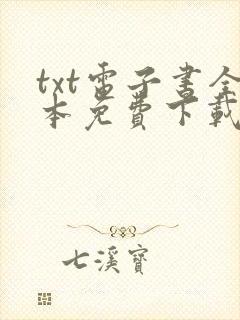 txt電子書全
本免費下載
七溪寶